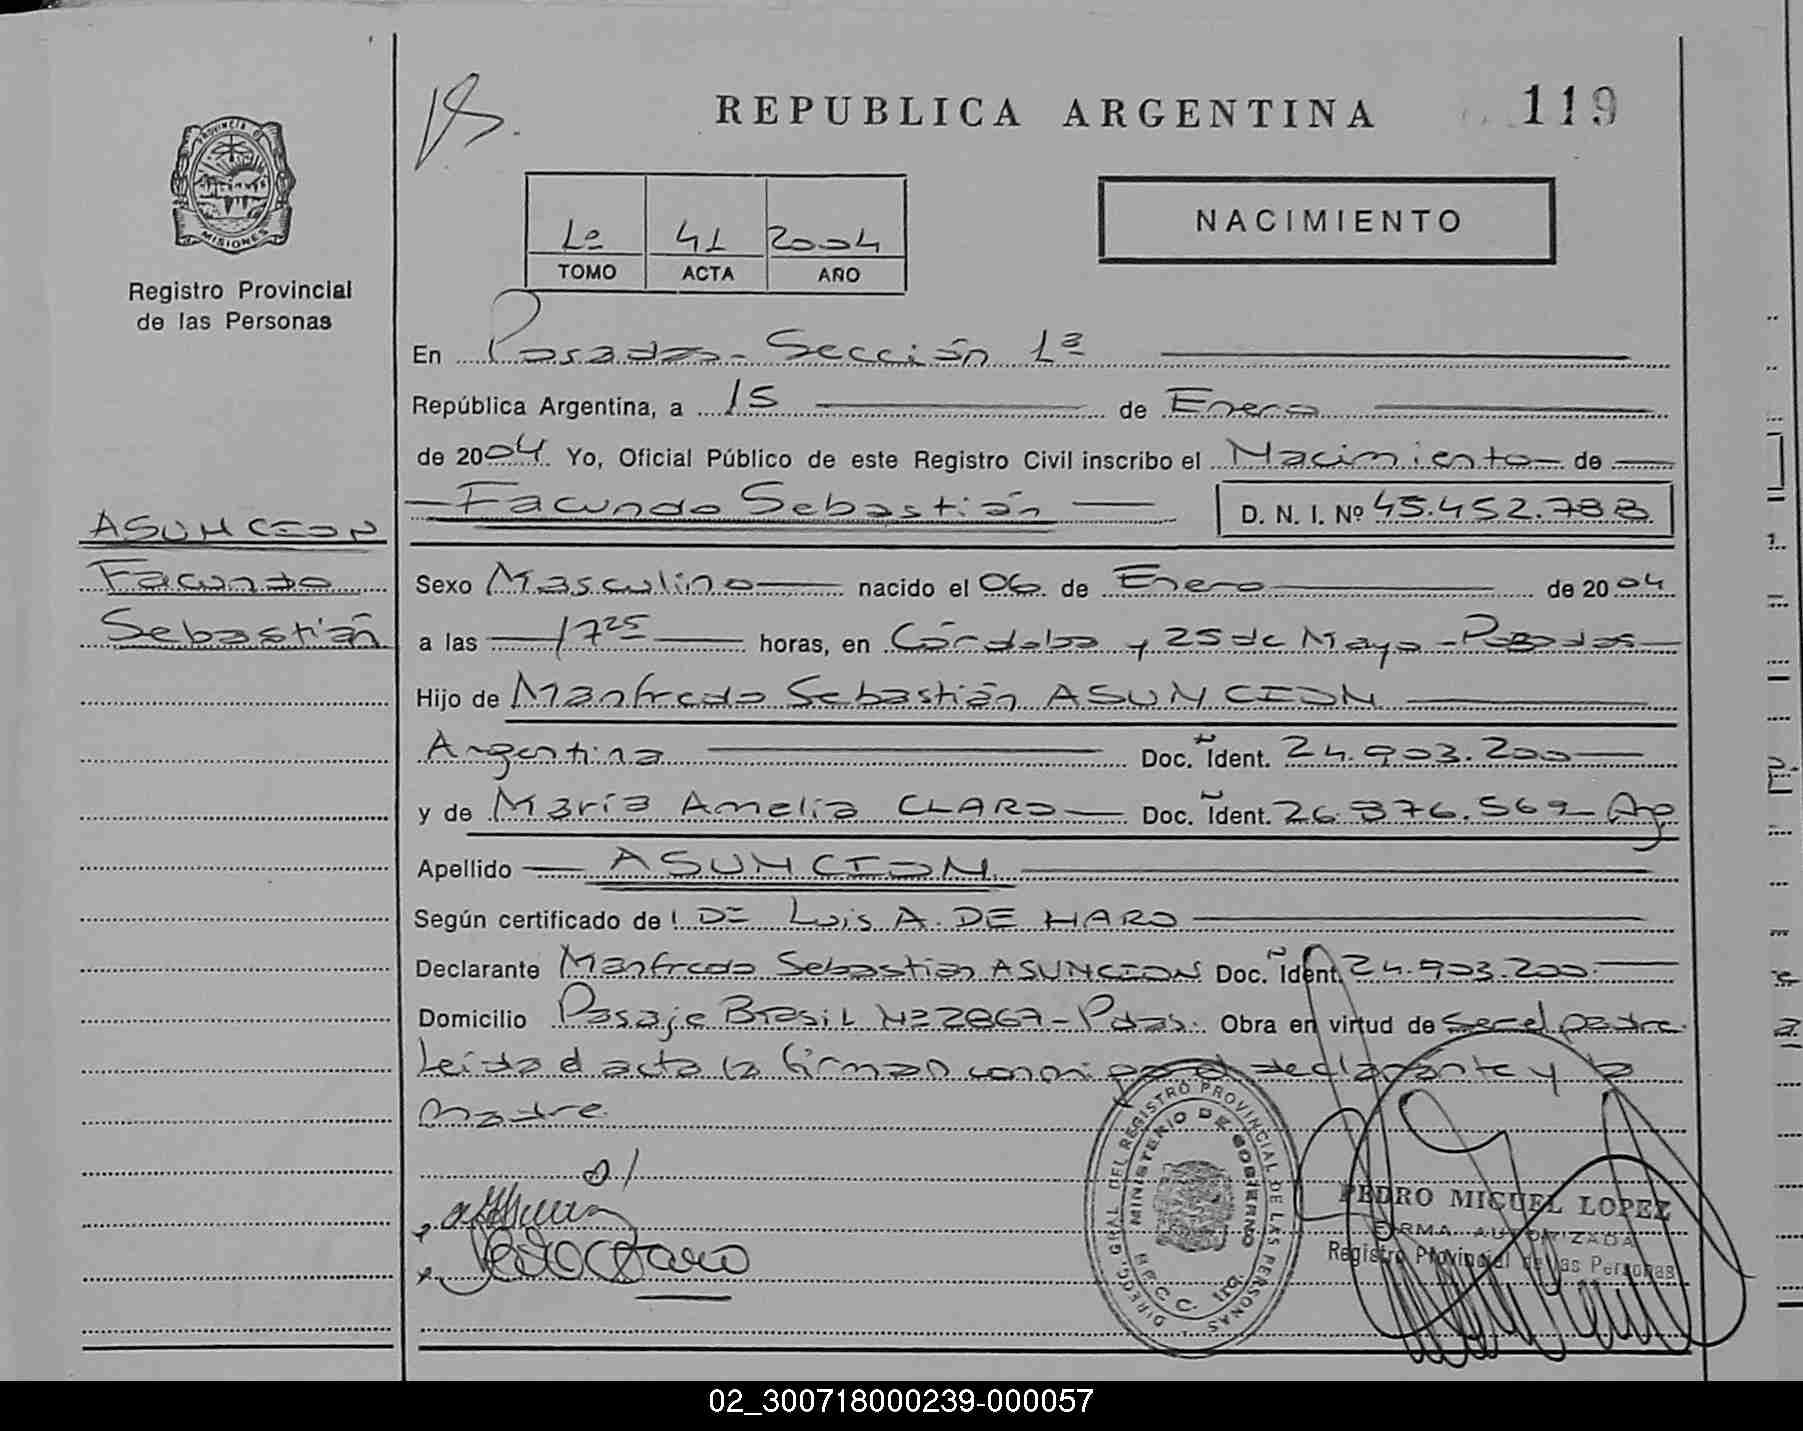 REPUBLICA ARGENTINA
119
PROVINCIA DE
MISIONES
Registro Provincial
de las Personas
1º 41 2004
TOMO ACTA AÑO
NACIMIENTO
En Posadas - Sección 1ª
República Argentina, a 15 de Enero
de 2004 Yo, Oficial Público de este Registro Civil inscribo el Nacimiento de
Facundo Sebastián D. N. I. Nº 45.452.788
ASUNCION
Facundo
Sebastián
Sexo Masculino nacido el 06 de Enero de 2004
a las 17 25 horas, en Córdoba y 25 de Mayo - Posadas
Hijo de Manfredo Sebastián ASUNCION
Argentina Doc. Ident. 24.903.200
y de María Amelia CLARO Doc. Ident. 26.376.569 Arg
Apellido ASUNCION
Según certificado de Luis A. DE HARO
Declarante Manfredo Sebastián ASUNCION Doc. Ident. 24.903.200
Domicilio Pasaje Brasil Nº 2867 - Pdas. Obra en virtud de Ser el padre.
Leída el acta la firman conmigo el declarante y la
madre.
DIREC. GRAL. DEL REGISTRO PROVINCIAL DE LAS PERSONAS
MINISTERIO DE GOBIERNO
PEDRO MIGUEL LOPEZ
FIRMA AUTORIZADA
Registro Provincial de las Personas
02_300718000239-000057